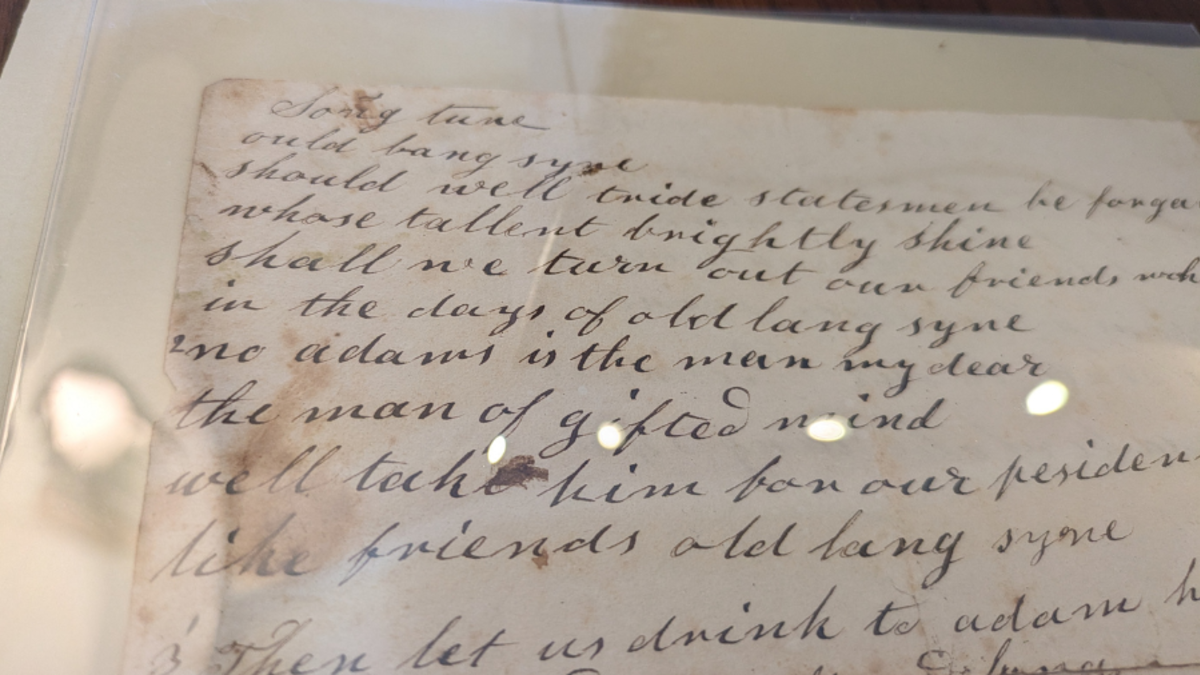 Song tune
ould bang syne
should well tride statesmen be forga
whose tallent brightly shine
shall we turn out our friends
in the days of old lang syne
2 no adams is the man my dear
the man of gifted mind
well take him for our presiden
like friends old lang syne
3 Then let us drink to adam h